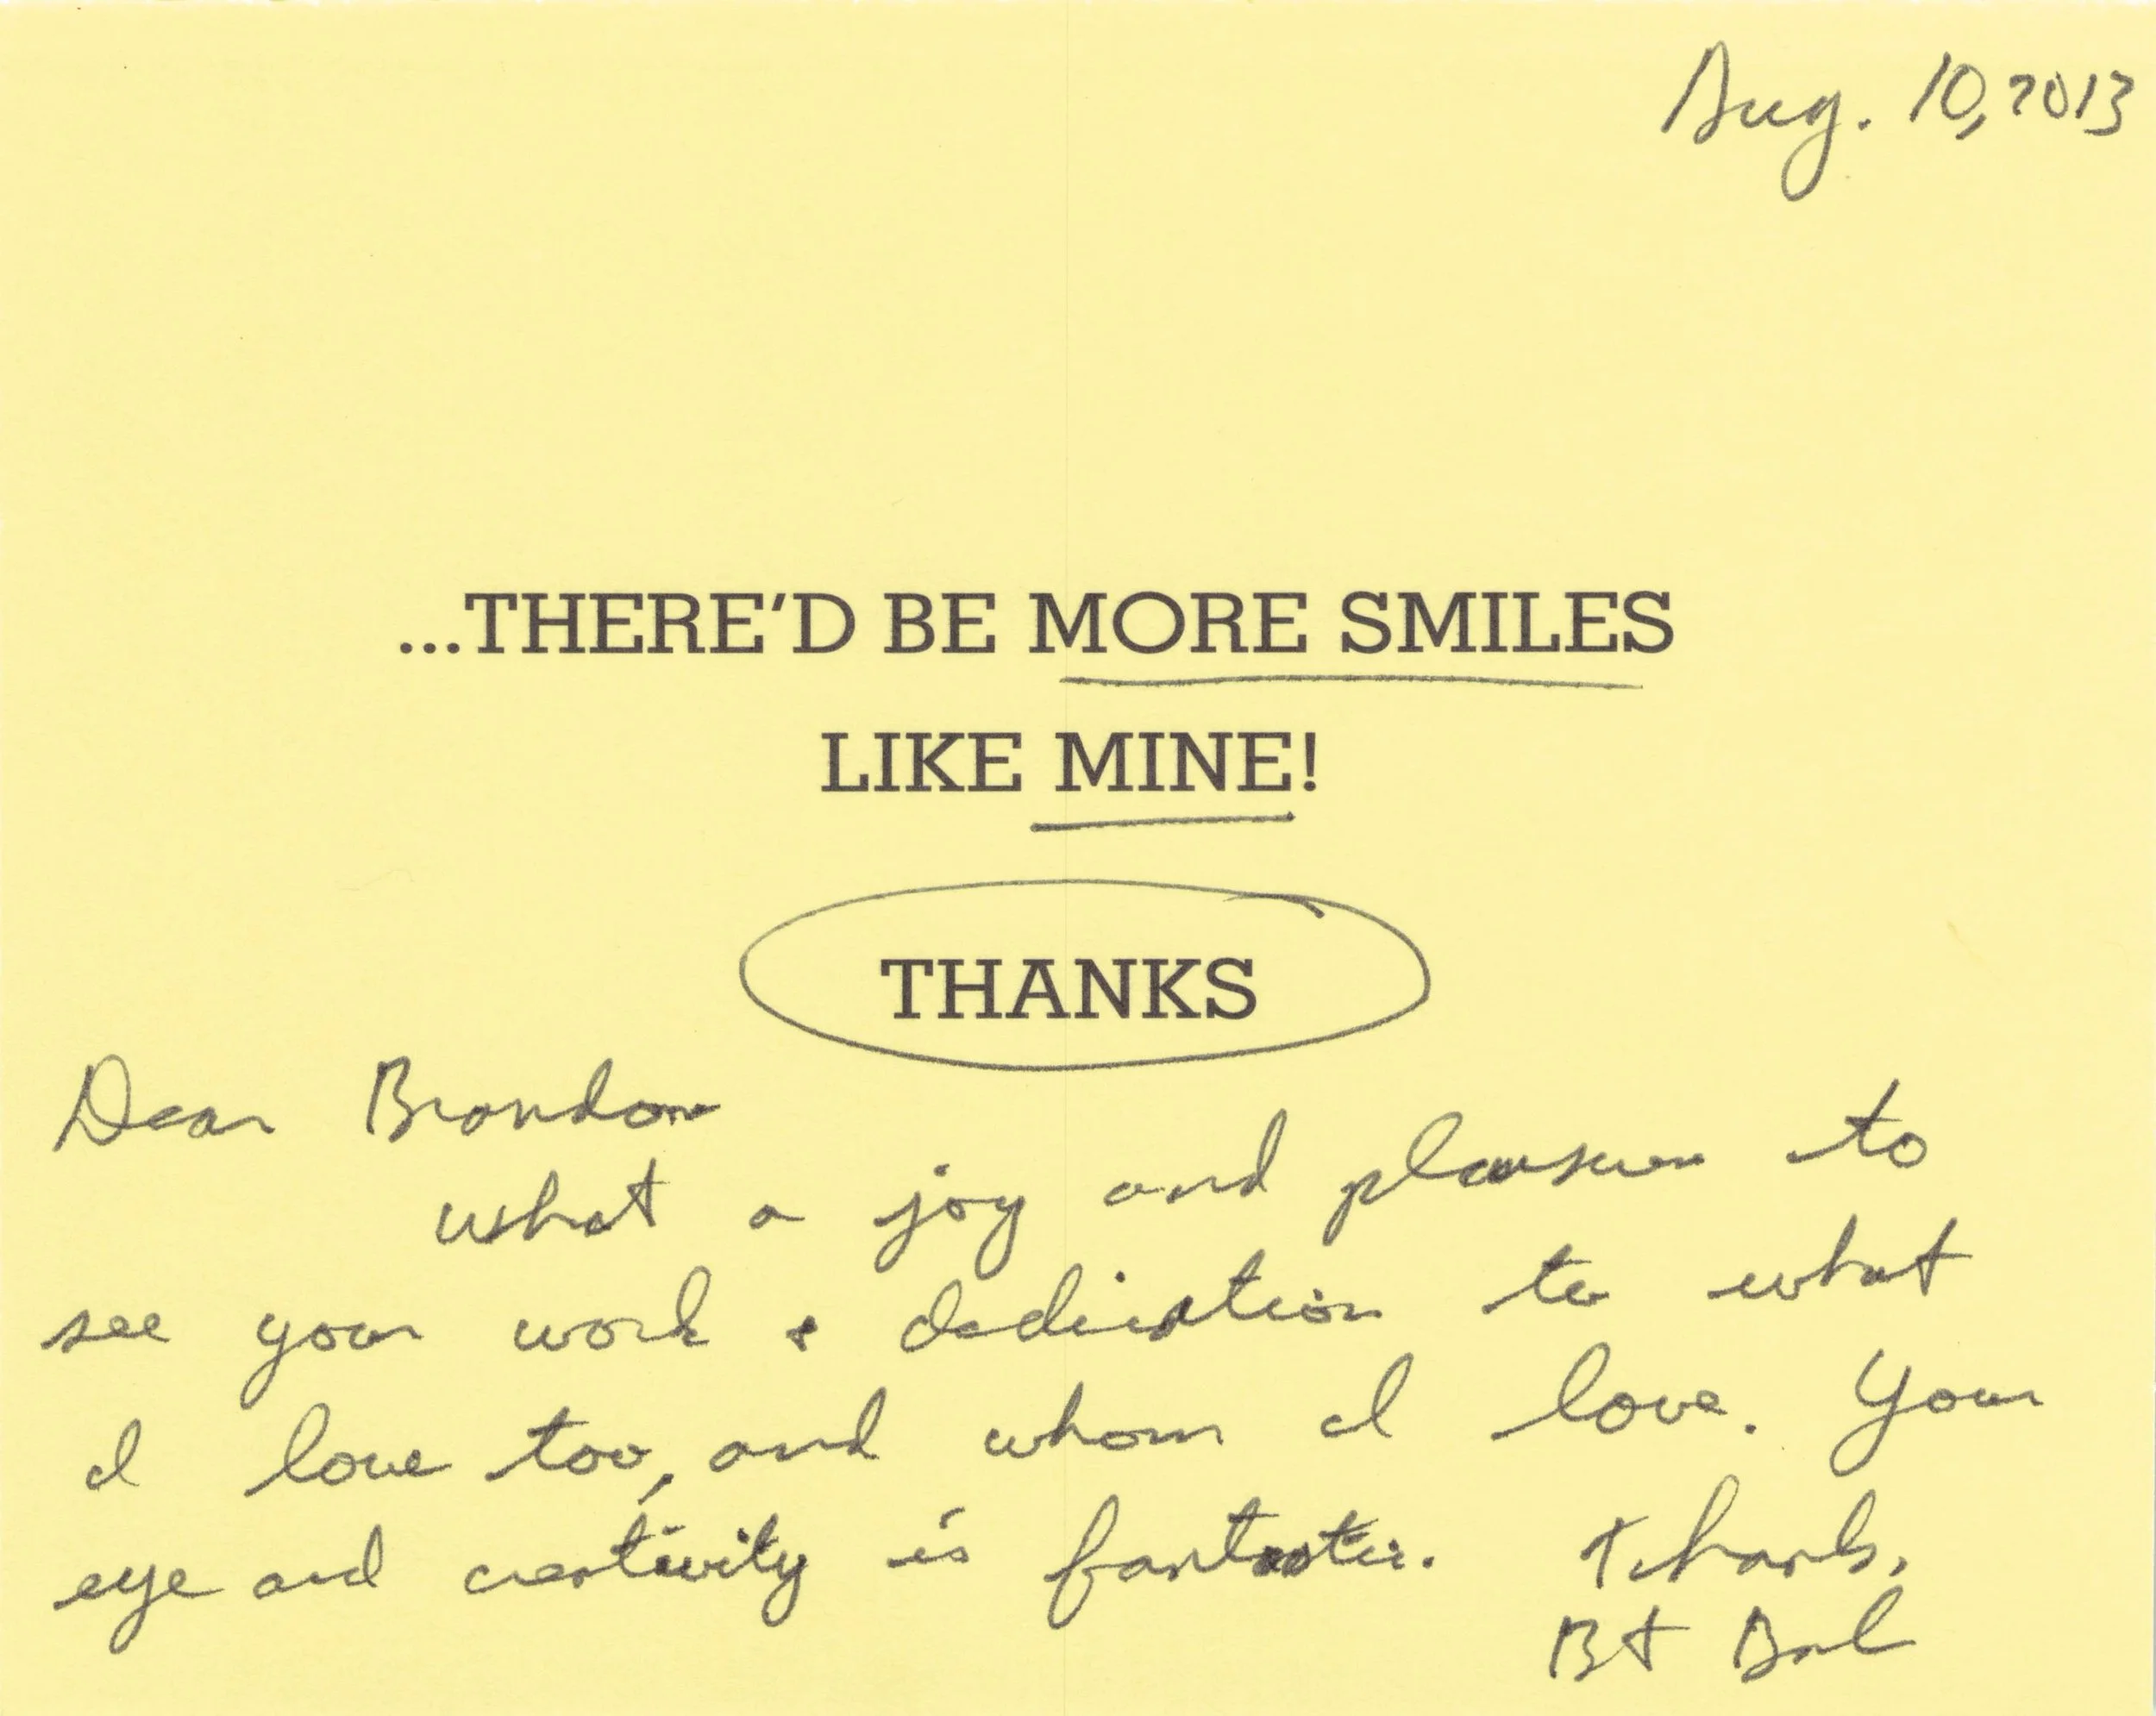 Aug. 10, 2013
...THERE'D BE MORE SMILES
LIKE MINE!
THANKS
Dear Brandon
what a joy and pleasure to
see your work & dedication to what
I love too, and whom I love. Your
eye and creativity is fantastic. Thanks,